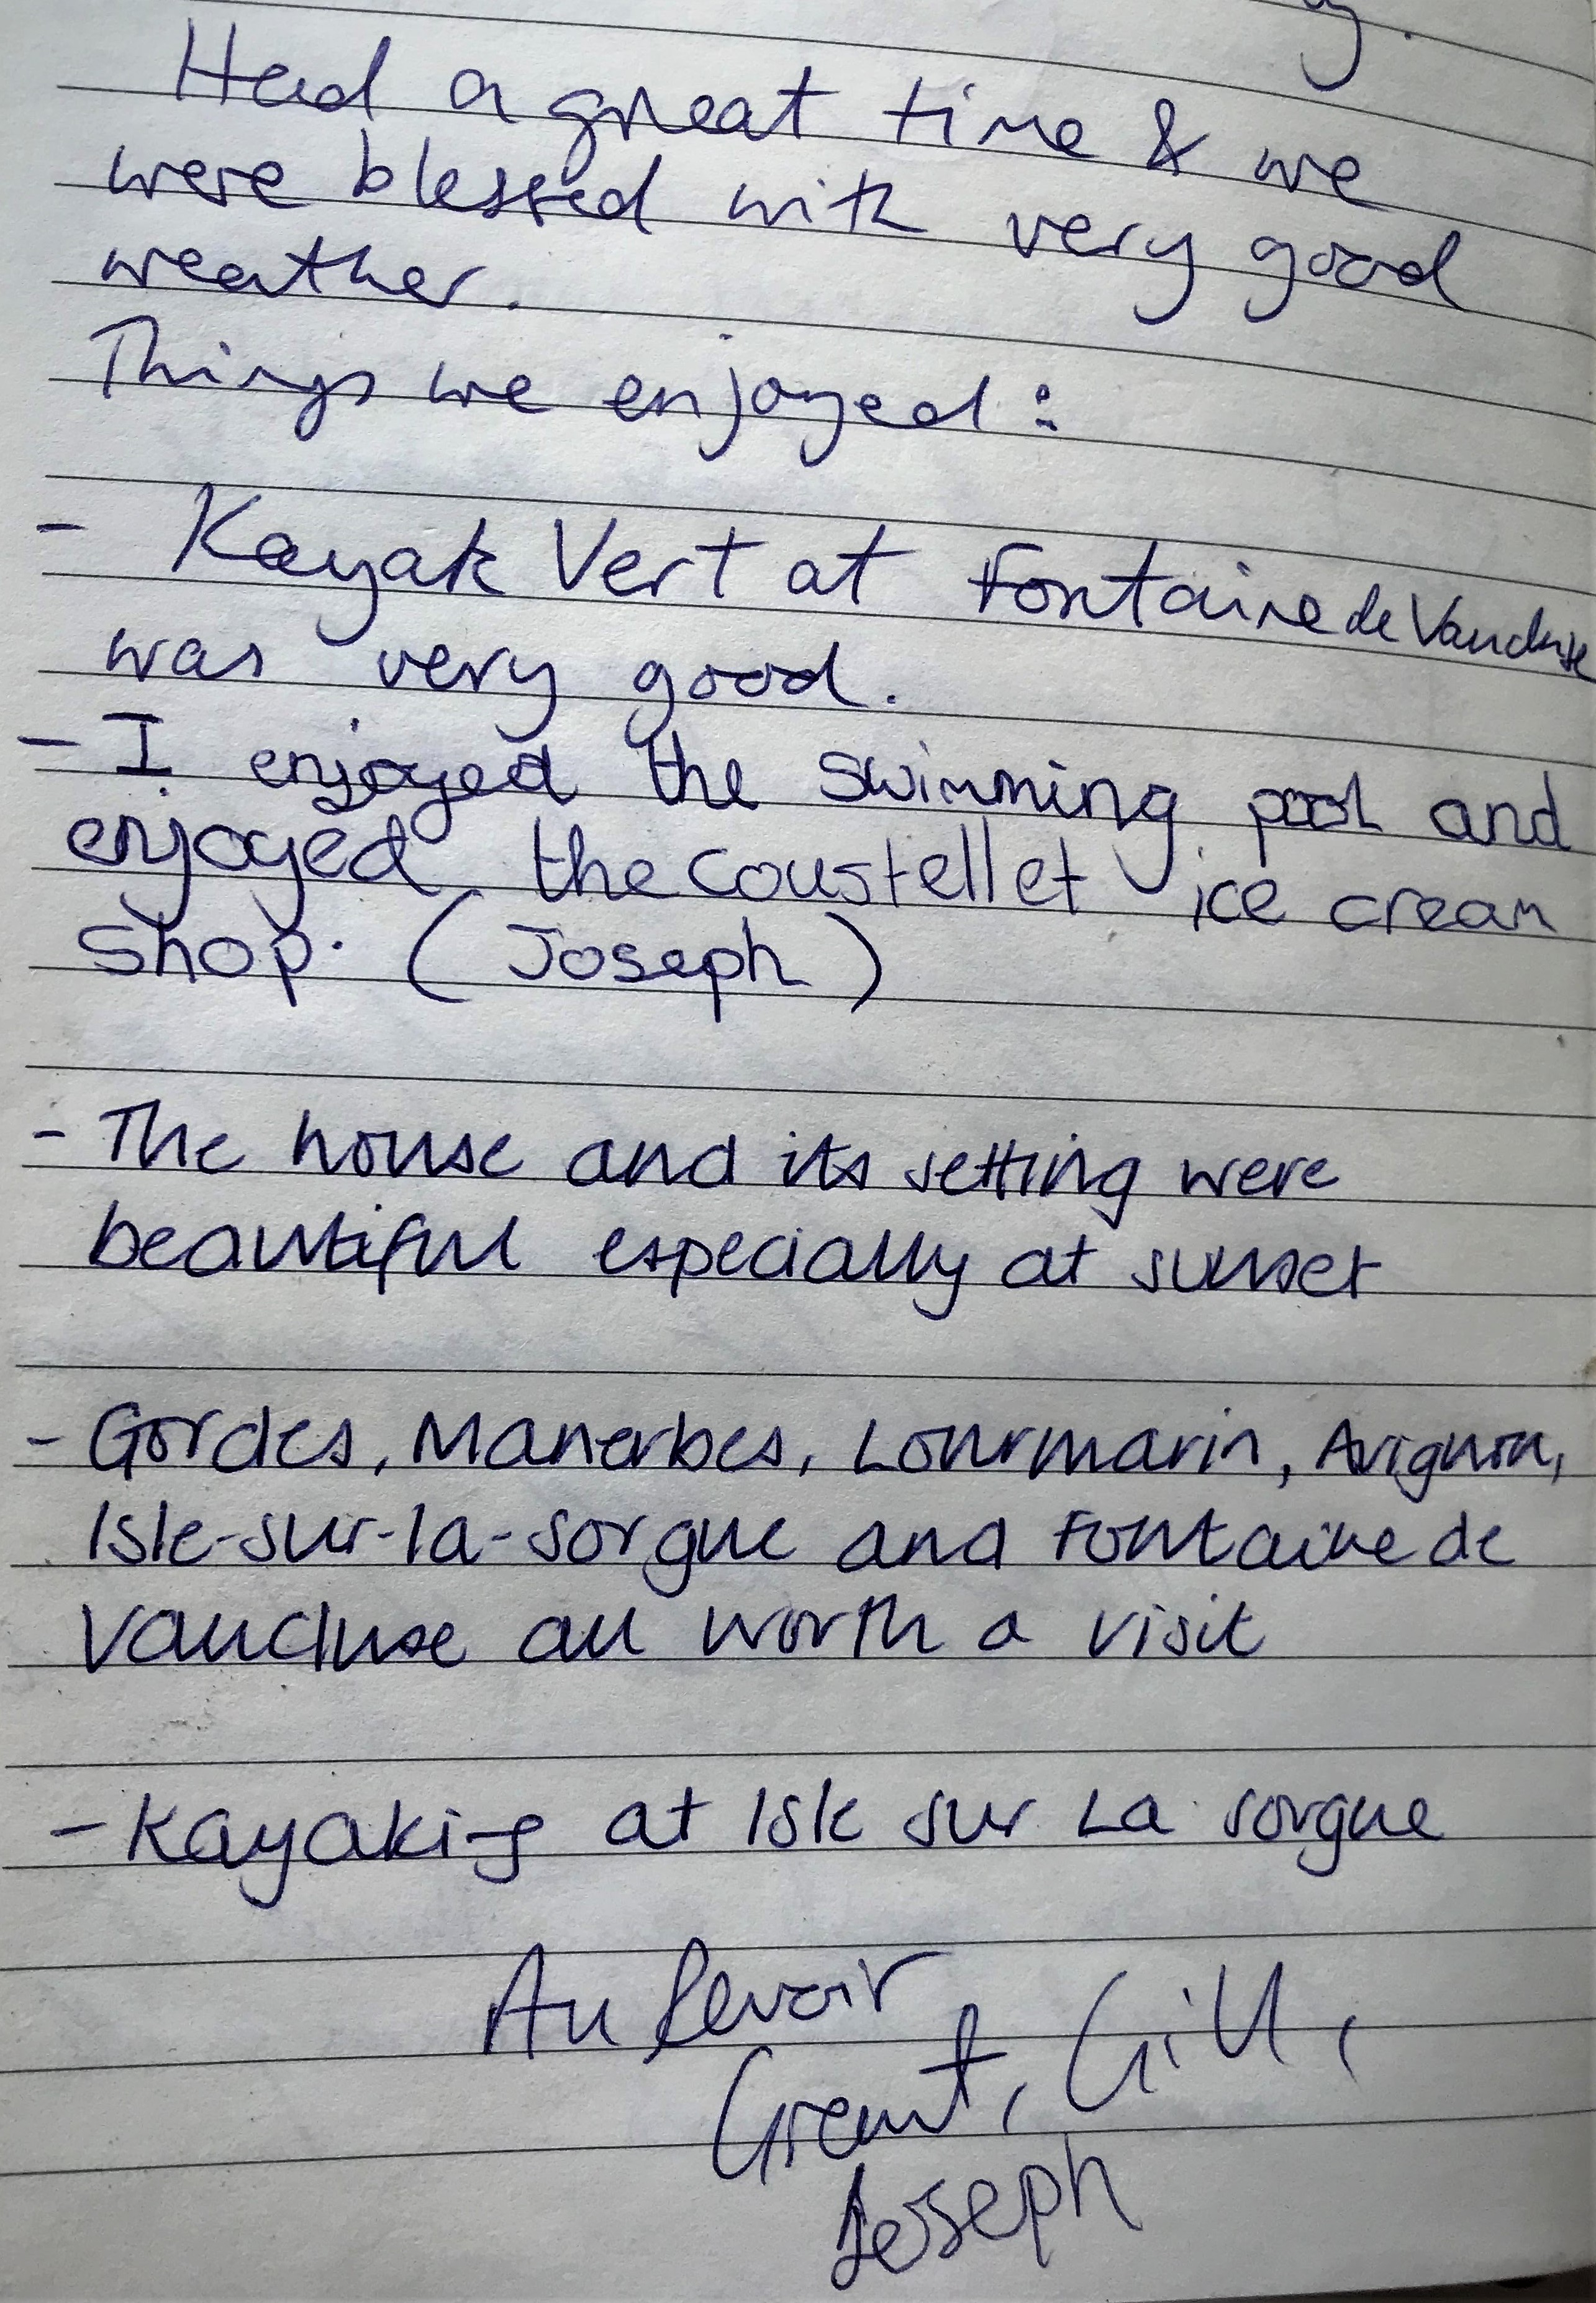 Had a great time & we
were blessed with very good
weather.
Things we enjoyed:
- Kayak Vert at Fontaine de Vaucluse
was very good.
- I enjoyed the swimming pool and
enjoyed the coustellet ice cream
shop. (Joseph)
- The house and its setting were
beautiful especially at sunset
- Gordes, Manerbes, Lourmarin, Avignon,
Isle-sur-la-sorgue and Fontaine de
Vaucluse all worth a visit
- Kayaking at Isle sur La sorgue
Au Revoir
Grant, Gill,
Joseph